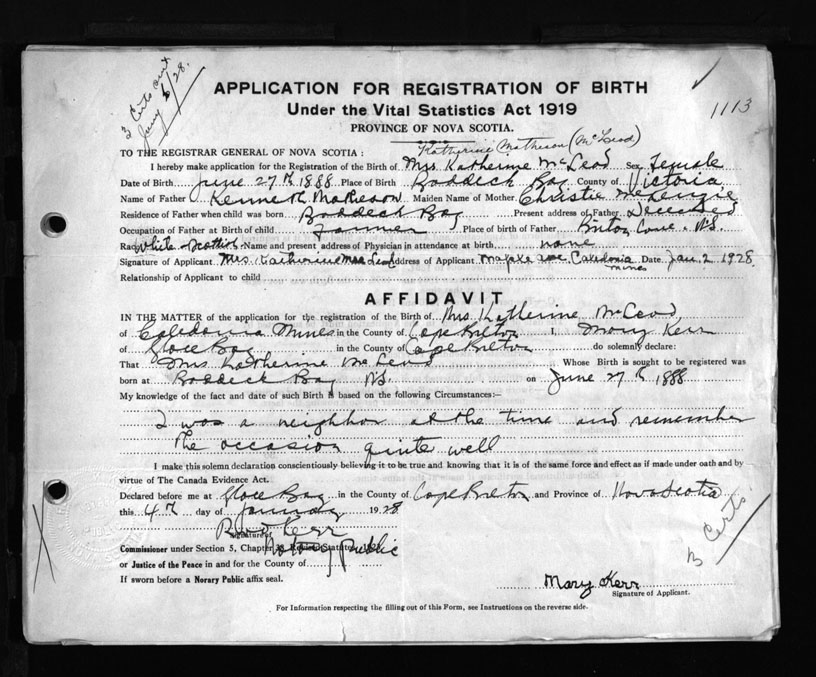 3 Certs sent
Jany 6/28.
APPLICATION FOR REGISTRATION OF BIRTH
1113
Under the Vital Statistics Act 1919
PROVINCE OF NOVA SCOTIA.
Katherine Matheson (McLeod)
TO THE REGISTRAR GENERAL OF NOVA SCOTIA :
I hereby make application for the Registration of the Birth of Mrs Katherine McLeod Sex Female
Date of Birth June 27th 1888 Place of Birth Baddeck Bay County of Victoria
Name of Father Kenneth Matheson Maiden Name of Mother Christie McKenzie
Residence of Father when child was born Baddeck Bay Present address of Father Deceased
Occupation of Father at Birth of child Farmer Place of birth of Father Cove N.S.
Race White Scottish Name and present address of Physician in attendance at birth none
Signature of Applicant Mrs. Katherine MacLeod Address of Applicant Maple Ave Caledonia mines Date Jan. 2 1928.
Relationship of Applicant to child
AFFIDAVIT
IN THE MATTER of the application for the registration of the Birth of Mrs Katherine McLeod,
of Caledonia Mines in the County of Cape Breton I, Mary Kerr
of Glace Bay in the County of Cape Breton do solemnly declare:
That Mrs Katherine McLeod Whose Birth is sought to be registered was
born at Baddeck Bay N.S on June 27th 1888
My knowledge of the fact and date of such Birth is based on the following Circumstances:—
I was a neighbor at the time and remember
the occasion quite well
I make this solemn declaration conscientiously believing it to be true and knowing that it is of the same force and effect as if made under oath and by
virtue of The Canada Evidence Act.
Declared before me at Glace Bay in the County of Cape Breton and Province of Nova Scotia
this 4th day of January 1928
Kerr
Signature of
Notary Public
Commissioner under Section 5, Chapter 38, Revised Statutes,
or Justice of the Peace in and for the County of
If sworn before a Norary Public affix seal.
Mary Kerr
Signature of Applicant.
3 Certs.
For Information respecting the filling out of this Form, see Instructions on the reverse side.